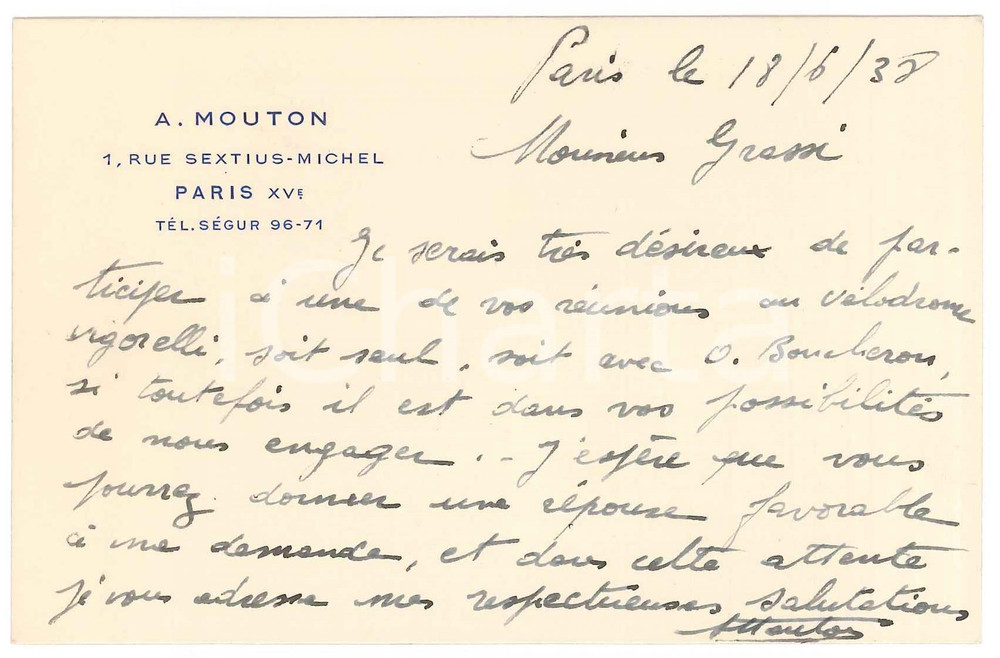 Paris le 18/6/38
A. MOUTON
1, RUE SEXTIUS-MICHEL
PARIS XVE
TÉL. SÉGUR 96-71
Monsieur Grassi
Je serais très désireux de par-
ticiper à une de vos réunions au vélodrome
vigorelli, soit seul, soit avec O. Boucheron,
si toutefois il est dans vos possibilités
de nous engager. - J'espère que vous
pourrez donner une réponse favorable
à ma demande, et dans cette attente
je vous adresse mes respectueuses salutations
AMouton
iCharta